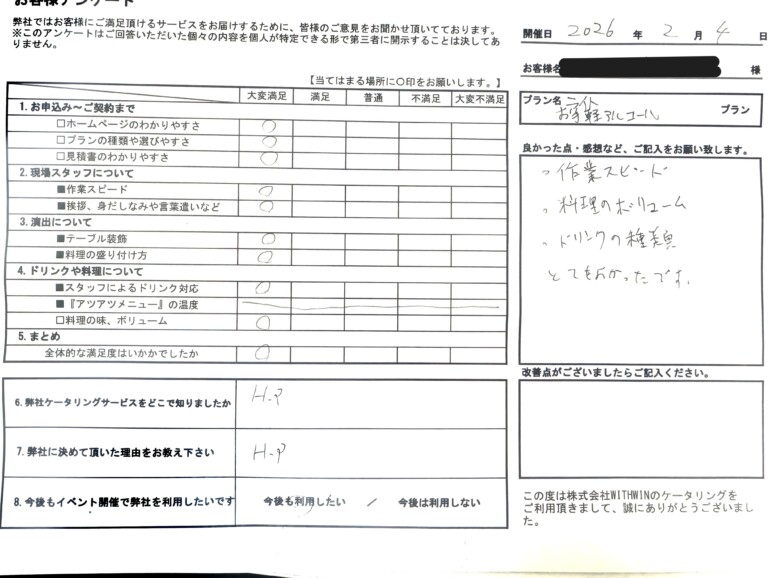 お客様アンケート
弊社ではお客様にご満足頂けるサービスをお届けするために、皆様のご意見をお聞かせ頂いております。
※このアンケートはご回答いただいた個々の内容を個人が特定できる形で第三者に開示することは決してありません。
開催日 2026 年 2 月 4 日
お客様名 様
プラン名 お手軽アルコール プラン
【当てはまる場所に○印をお願いします。】
大変満足 満足 普通 不満足 大変不満足
1. お申込み～ご契約まで
□ホームページのわかりやすさ ○
□プランの種類や選びやすさ ○
□見積書のわかりやすさ ○
2. 現場スタッフについて
■作業スピード ○
■挨拶、身だしなみや言葉遣いなど ○
3. 演出について
■テーブル装飾 ○
■料理の盛り付け方 ○
4. ドリンクや料理について
■スタッフによるドリンク対応 ○
■『アツアツメニュー』の温度
□料理の味、ボリューム ○
5. まとめ
全体的な満足度はいかかでしたか ○
6. 弊社ケータリングサービスをどこで知りましたか H.P
7. 弊社に決めて頂いた理由をお教え下さい H.P
8. 今後もイベント開催で弊社を利用したいです 今後も利用したい / 今後は利用しない
良かった点・感想など、ご記入をお願い致します。
・作業スピード
・料理のボリューム
・ドリンクの種類
とてもよかったです。
改善点がございましたらご記入ください。
この度は株式会社WITHWINのケータリングを
ご利用頂きまして、誠にありがとうございまし
た。